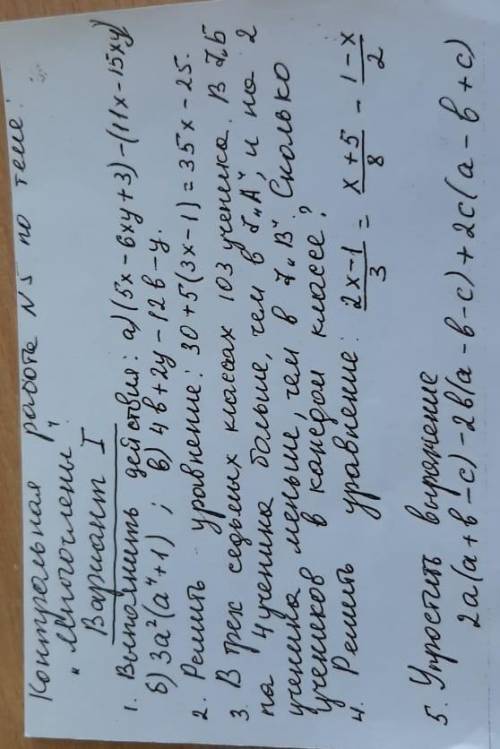 Контрольная работа N5 по теме:
"Многочлены"
Вариант I
1. Выполнить действия: а)(5x-6xy+3)-(11x-15xy)
б) 3a²(a⁴+1) ; в) 4в+2y-12в-y.
2. Решить уравнение: 30+5(3x-1)=35x-25.
3. В трех седьмых классах 103 ученика. В 7„Б
на 4 ученика больше, чем в 7„А", и на 2
ученика меньше, чем в 7„В". Сколько
учеников в каждом классе?
4. Решить уравнение: (2x-1)/3 = (x+5)/8 - (1-x)/2
5. Упростить выражение
2a(a+в-c)-2в(a-в-c)+2c(a-в+c)